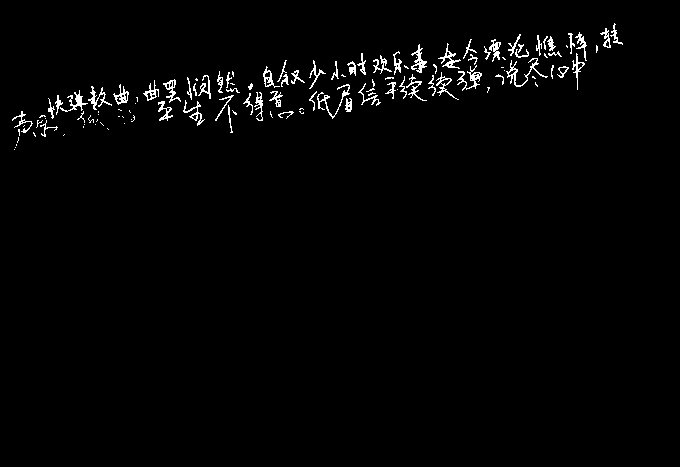 快弹数曲，曲罢悯然。自叙少小时欢乐事，今漂沦憔悴，转
声思，似诉平生不得意。低眉信手续续弹，说尽心中